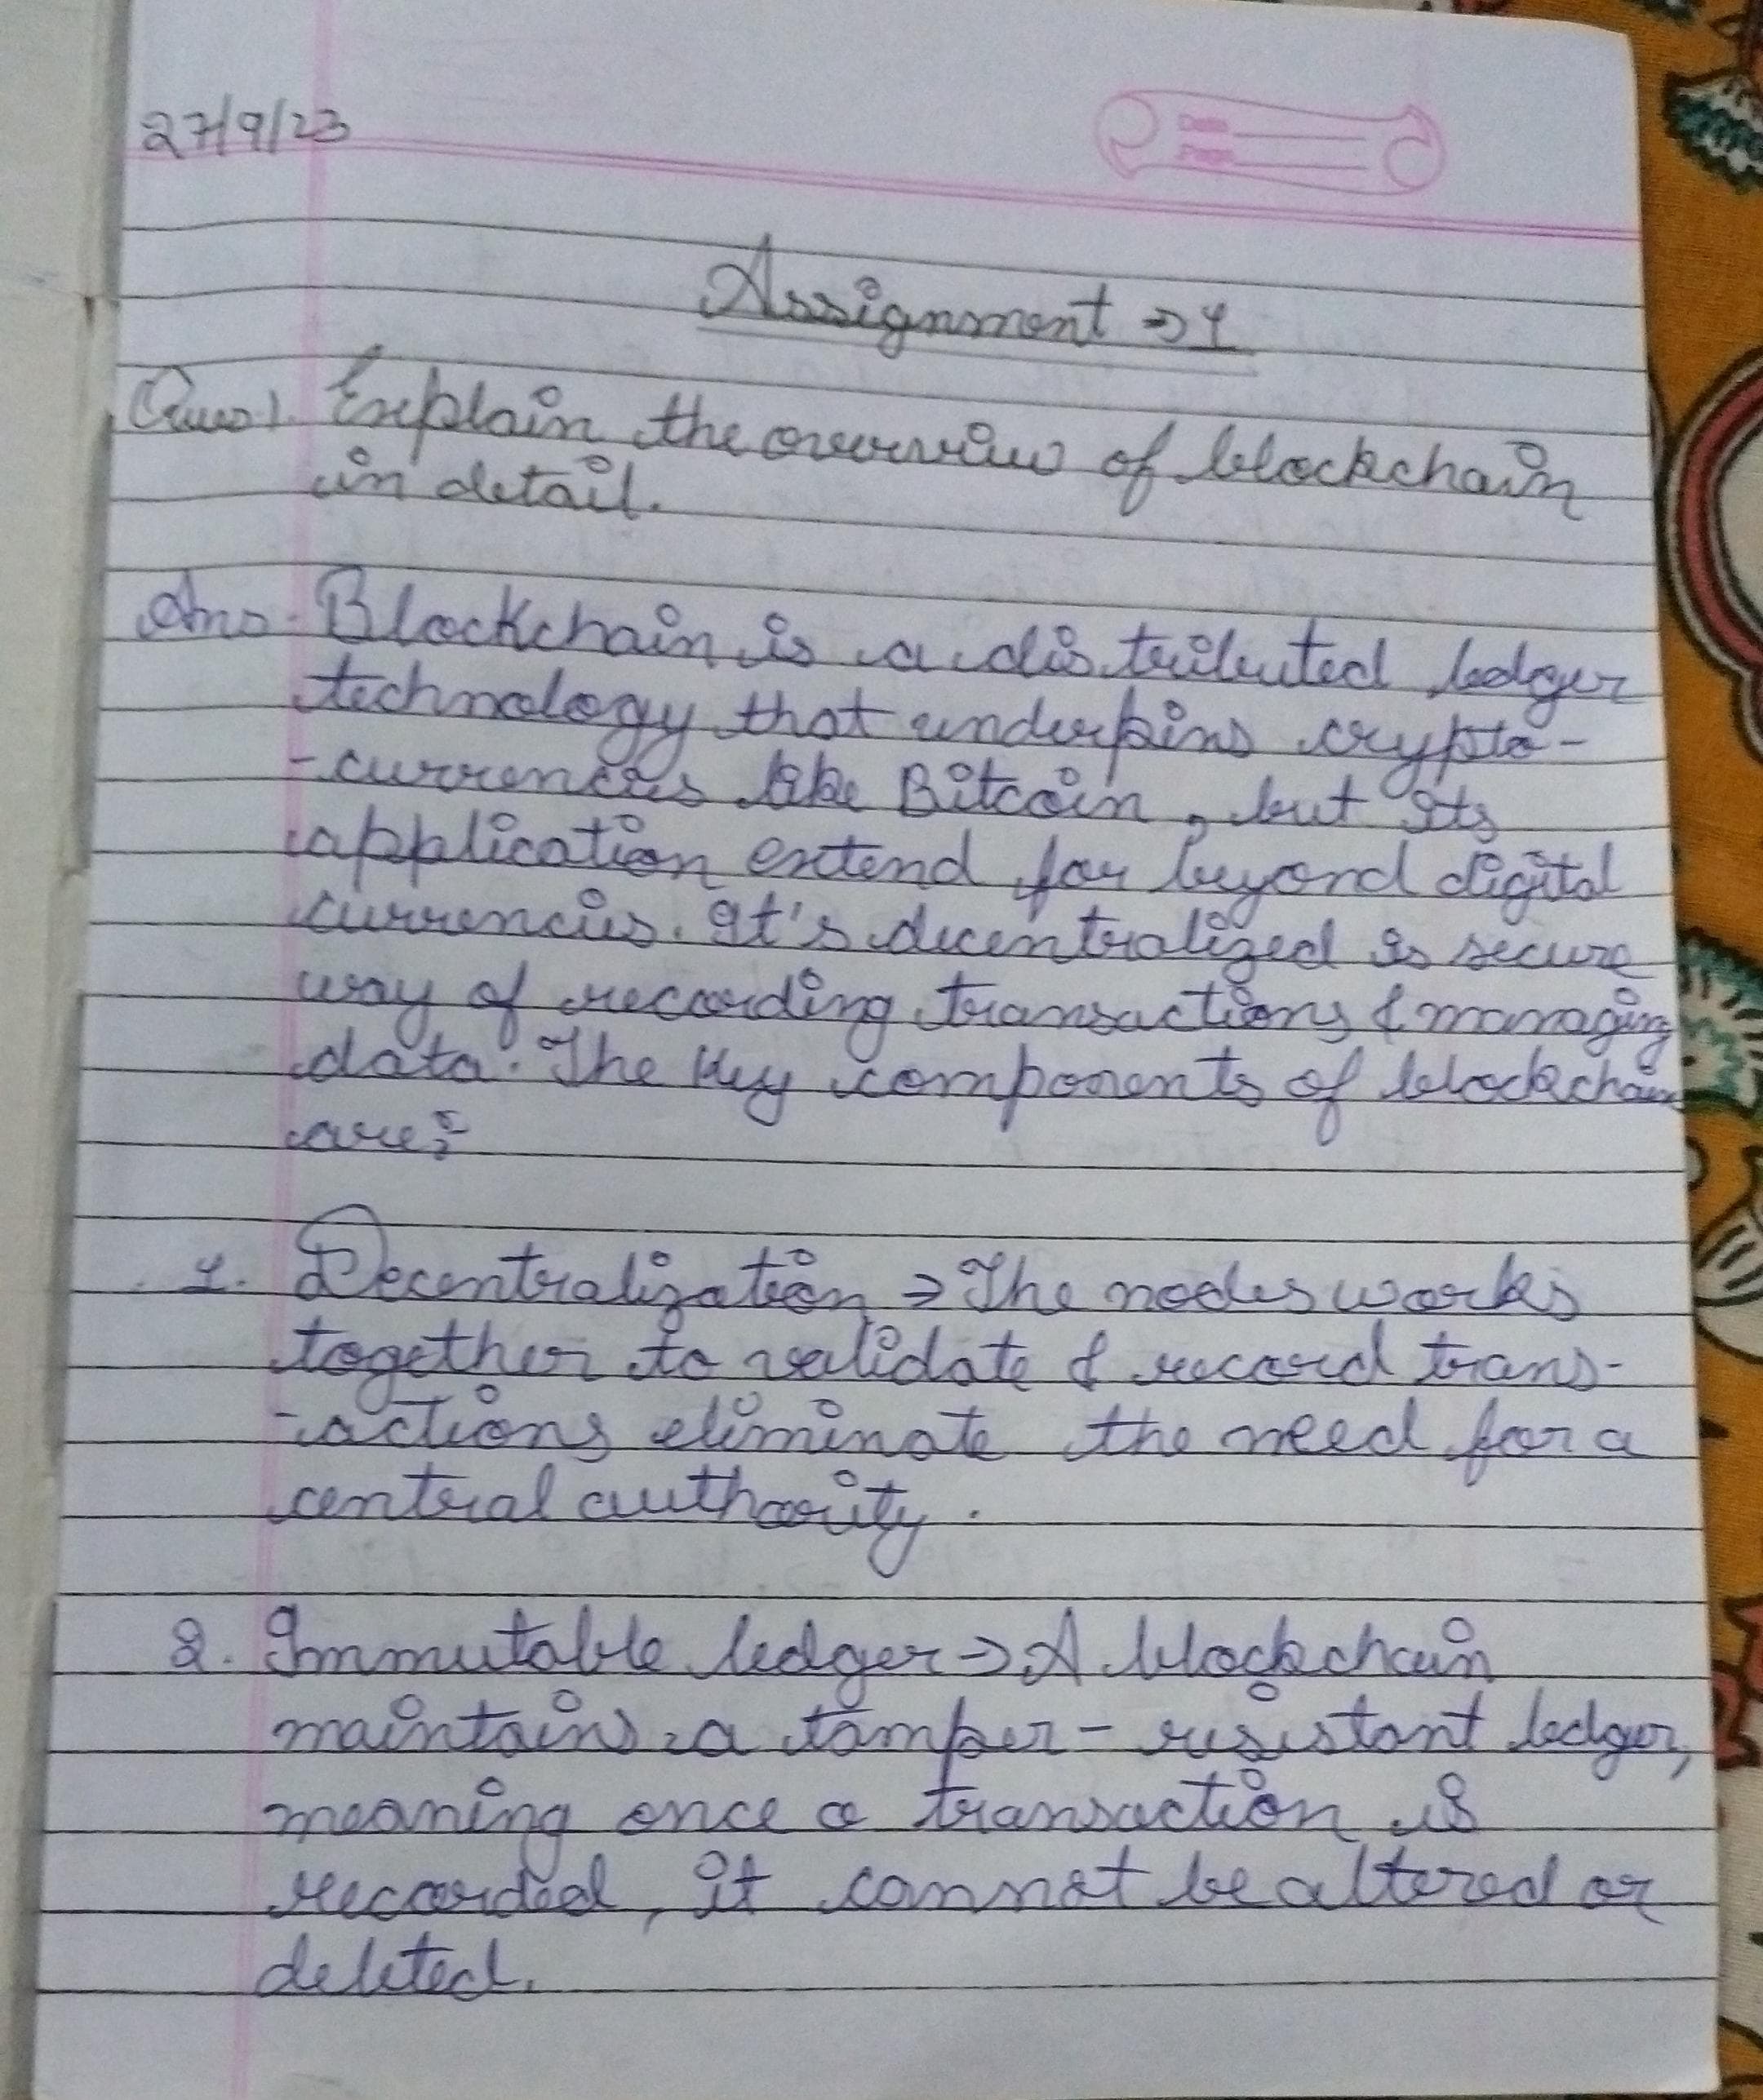 27/9/23
Date
Page
Assignment ⇒ 1
Ques1. Explain the overview of blockchain
in detail.
Ans. Blockchain is a distributed ledger
technology that underpins crypto-
-currencies like Bitcoin, but its
application extend far beyond digital
currencies. It's decentralized is secure
way of recording transactions & managing
data. The key components of blockchain
are:
1. Decentralization ⇒ The nodes works
together to validate & record trans-
-actions eliminate the need for a
central authority.
2. Immutable ledger ⇒ A blockchain
maintains a tamper-resistant ledger,
meaning once a transaction is
recorded, it cannot be altered or
deleted.